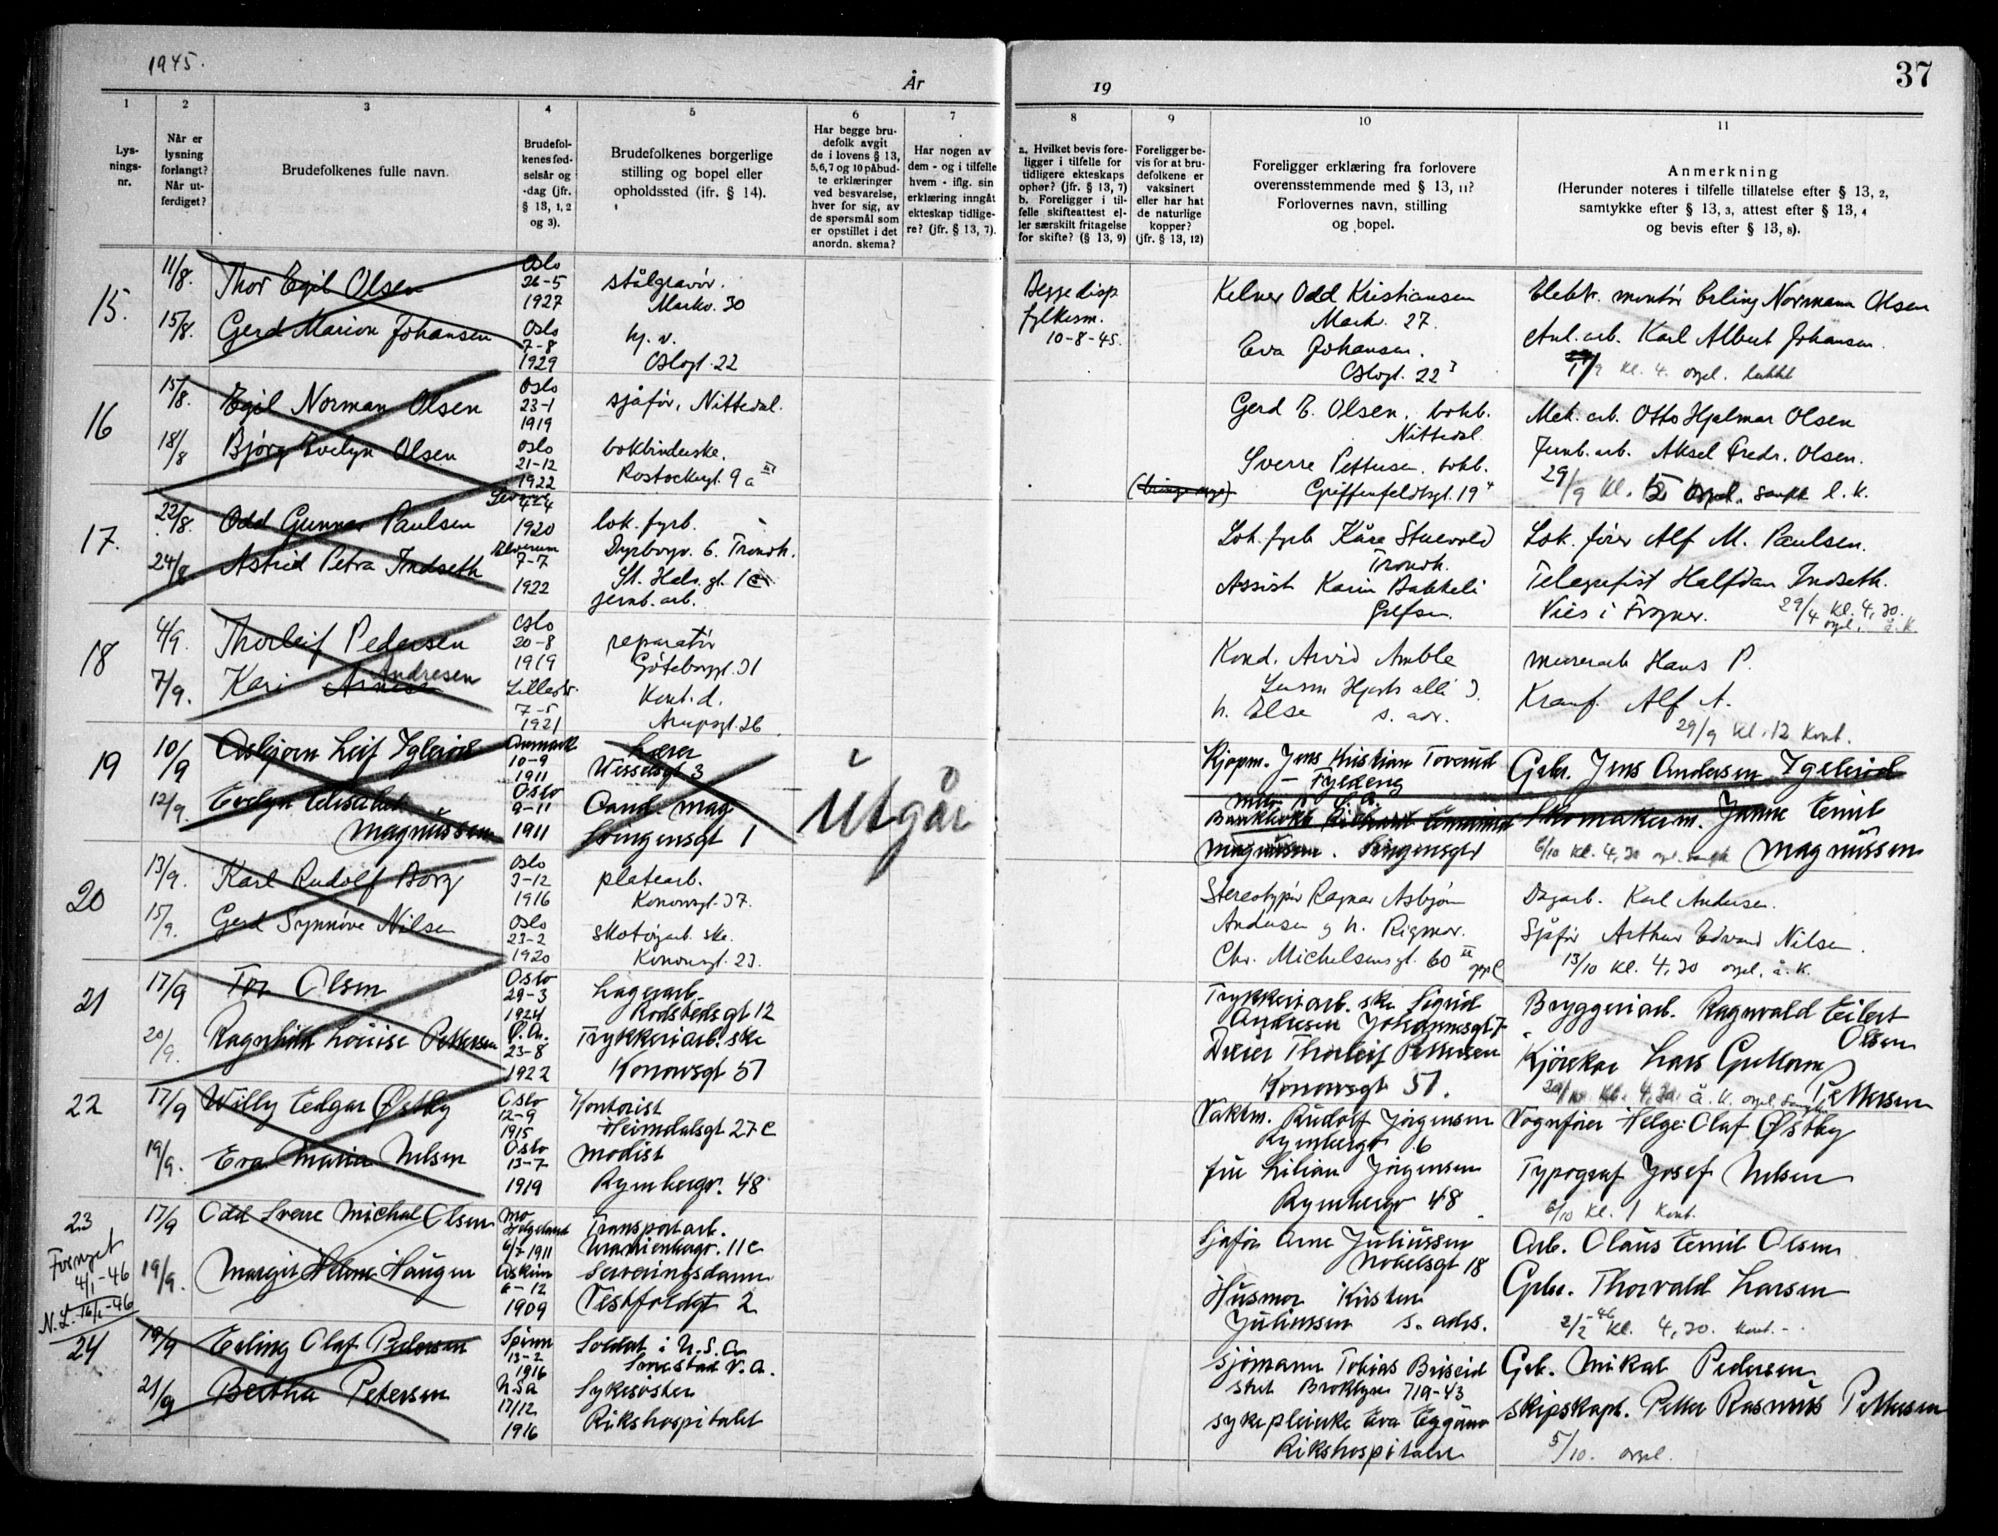 1945.
År
19
37
1
2
3
4
5
6
7
8
9
10
11
Lys-
nings-
nr.
Når er
lysning
forlangt?
Når ut-
ferdiget?
Brudefolkenes fulle navn.
Brudefol-
kenes fød-
selsår og
-dag (jfr.
§ 13, 1, 2
og 3).
Brudefolkenes borgerlige
stilling og bopel eller
opholdssted (ifr. § 14).
Har begge bru-
defolk avgit
de i lovens § 13,
5,6,7 og 10 påbud-
te erklæringer
ved besvarelse,
hver for sig, av
de spørsmål som
er opstillet i det
anordn. skema?
Har nogen av
dem - og i tilfelle
hvem - iflg. sin
erklæring inngåt
ekteskap tidlige-
re? (jfr. § 13, 7).
a. Hvilket bevis fore-
ligger i tilfelle for
tidligere ekteskaps
ophør? (jfr. § 13, 7)
b. Foreligger i til-
felle skifteattest el-
ler særskilt fritagelse
for skifte? (§ 13, 9)
Foreligger be-
vis for at bru-
defolkene er
vaksinert
eller har hat
de naturlige
kopper?
(jfr. § 13, 12)
Foreligger erklæring fra forlovere
overensstemmende med § 13, 11?
Forlovernes navn, stilling
og bopel.
Anmerkning
(Herunder noteres i tilfelle tillatelse efter § 13, 2,
samtykke efter § 13, 3, attest efter § 13, 4
og bevis efter § 13, 8).
15.
11/8.
Thor Egil Olsen
Oslo
26-5
1927
stålgravør.
Markv. 30
Begge disp
fylkesm.
10-8-45.
Kelner Odd Kristiansen
Markv. 27.
Elektr. montør Erling Normann Olsen
15/8.
Gerd Marion Johansen
Oslo
7-8
1929
hj. v.
Oslogt. 22
Eva Johansen.
Oslogt. 22
Anl. arb. Karl Albert Johansen.
kl. 4. orgel. lukket
16
15/8.
Egil Norman Olsen
Oslo
23-1
1919
sjåfør, Nittedal.
Gerd E. Olsen, bokb.
Nittedal.
Mek. arb. Otto Hjalmar Olsen
18/8
Bjørg Evelyn Olsen
Oslo
21-12
1922
bokbinderske.
Rostockergt. 9a III
Sverre Pettersen, bokb.
Griffenfeldtsgt. 19
Jernb. arb. Aksel Fredr. Olsen.
29/9 kl. 5 orgel. sangk l. k.
17.
22/8.
Odd Gunnar Paulsen
4-4
1920
lok. fyrb.
Dyrborgv. 6. Trondh.
Lok. fyrb Kåre Stuevold
Trondh.
Lok. fører Alf M. Paulsen.
24/8.
Astrid Petra Indseth
Elverum
7-7
1922
St. Halv. gt. 1
jernb. arb.
Assist Karin Bakkeli
Grefsen.
Telegrafist Halfdan Indseth.
Vies i Frogner.
29/4 kl. 4,30.
orgel. å. k
18
4/9.
Thorleif Pedersen
Oslo
20-8
1919
reparatør
Göteborggt. 31
Kond. Arvid Amble
murerarb Hans P.
7/9.
Kari Andresen
Lillestr.
7-5
1921
Kont. d.
Arupsgt. 26
h. Else s. adr.
Alf A.
29/9 kl. 12 kont.
19
10/9
Asbjørn Leif Iglerød
Danmark
10-9
1911
Lærer
Wesselsgt 3
Utgår
Kjøpm. Jens Kristian Torerud
Fyldeng
Grbr. Jens Andersen Iglerød
12/9.
Evelyn Elisabet
Magnussen
Oslo
9-11
1911
Cand. mag
Svingensgt 1
Magnussen. Svingensgt 1
Skomakerm. Janne Emil
6/10 kl. 4,30 orgel. sangk Magnussen
20
13/9.
Karl Rudolf Borg
Oslo
3-12
1916
platearb.
Konowsgt. 37.
Stereotypør Ragnar Asbjørn
Andersen g h. Rigmor.
Dagarb. Karl Andersen.
15/9.
Gerd Synnøve Nilsen
Oslo
23-2
1920
skotøyarb. ske.
Konowsgt. 23.
Chr. Michelsensgt. 60 III oppg C
Sjåfør Arthur Edvard Nilsen.
13/10 kl. 4,30 orgel, å. k.
21
17/9
Tor Olsen
Oslo
29-3
1924
Lagerarb.
Rodstedsgt 12
Trykkeriarb. ske Sigrid
Andresen Johannesgt 7
Bryggeriarb. Ragnvald Eilert
Olsen
20/9.
Ragnhild Louise Pettersen
Ø. A.
23-8
1922
Trykkeriarb. ske
Konowsgt 51
Dreier Thorleif Pettersen
Konowsgt 51.
Kjørekar Lars Guttorm
Pettersen
20/10 kl. 4,30. å. k. orgel sangk
22
17/9
Willy Edgar Østby
Oslo
12-9
1915
Kontorist
Heimdalsgt 27 C
Vaktm. Rudolf Jørgensen
Rymbergv 6
Vognfører Helge Olaf Østby
19/9.
Eva Maria Nilsen
Oslo
13-7
1919
Modist
Rymbergv. 48
fru Lilian Jørgensen
Rymbergv 48
Typograf Josef Nilsen
6/10 kl. 1 kont.
23
Fornyet
4/1-46
N.L. 16/1-46
17/9
Odd Sverre Michal Olsen
Mo
Helgeland
6/7 1911
Transportarb.
Uranienborgv. 11 C
Sjåfør Arne Juliussen
Nobelsgt 18
Arb. Olaus Emil Olsen
19/9.
Margit Helene Haugen
Askim
6-12
1909
Serveringsdame
Vestfoldgt 2
Husmor Kirsten
Juliussen s. adrs.
Grbr. Thorvald Larsen
2/2-46 kl. 4,30. kont.-
24
19/9
Erling Olaf Pedersen
Spinn
13-2
1916
Soldat i U.S.A
Smestad V. A.
Sjømann Tobias Briseid
stret Broklyn 719-43
Grb. Mikal Pedersen
21/9
Bertha Petersen
USA
17/12
1916
Sykesøster
Rikshospitalet
sykepleierske Eva Eggum
Rikshospitalet
Skipskapt. Petter Rasmus Pettersen
5/10. orgel.